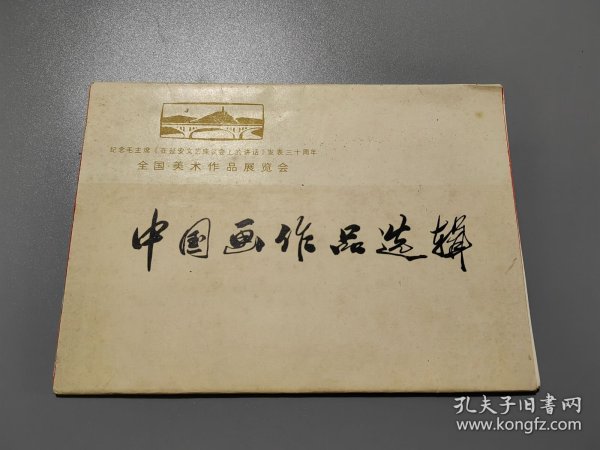 纪念毛主席《在延安文艺座谈会上的讲话》发表三十周年
全国美术作品展览会
中国画作品选辑
孔夫子旧书网
www.kongfz.com